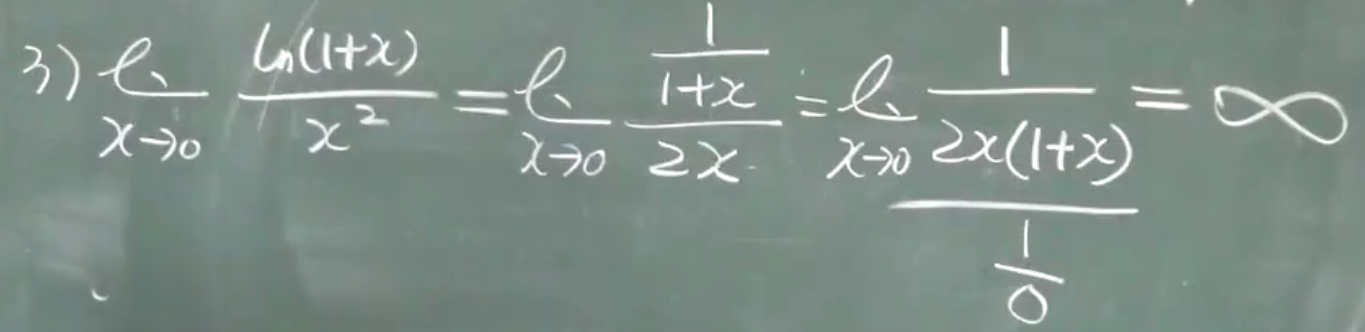 3) lim_{x→0} \frac{ln(1+x)}{x^2} = lim_{x→0} \frac{\frac{1}{1+x}}{2x} = lim_{x→0} \frac{1}{2x(1+x)} = ∞
\frac{1}{0}